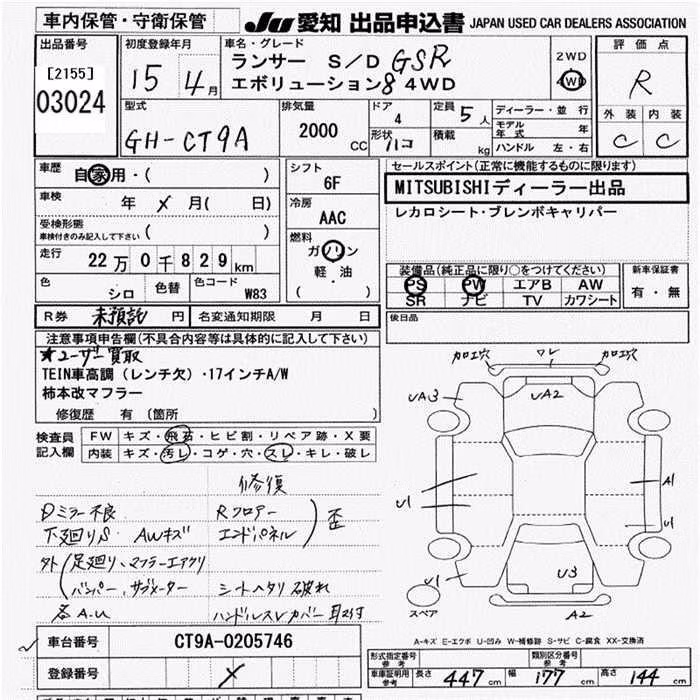 車内保管・守衛保管
JU 愛知 出品申込書 JAPAN USED CAR DEALERS ASSOCIATION
出品番号
[2155]
03024
初度登録年月
15 4月
車名・グレード
ランサー S/D GSR
エボリューション8 4WD
2WD
4WD
評価点
R
外装 内装
C C
型式
GH-CT9A
排気量
2000 CC
ドア
4
形状 ハコ
定員 5人
積載 kg
ディーラー・並行
モデル年式 年
ハンドル 左・右
車歴
自家用・( )
車検 年 メ 月( 日)
受検形態
車検付きのみ記入して下さい ( )
走行
22万0千829km
色 シロ
色替
色コード W83
シフト
6F
冷房
AAC
燃料
ガソリン
軽・油
( )
セールスポイント(正常に機能するものに限ります)
MITSUBISHIディーラー出品
レカロシート・ブレンボキャリパー
装備品(純正品に限り○をつけてください)
PS PW エアB AW
SR ナビ TV カワシート
新車保証書
有・無
R券 未預託 円
名変通知期限 月 日
後日品
注意事項申告欄(不具合内容等は具体的に記入して下さい)
★ユーザー買取
TEIN車高調(レンチ欠)・17インチA/W
柿本改マフラー
修復歴 有(箇所 )
検査員
記入欄
FW キズ・飛石・ヒビ割・リペア跡・X要
内装 キズ・汚レ・コゲ・穴・スレ・キレ・破レ
修復
Dミラー不良
下廻りS. AWキズ
外(足廻り、マフラーエアクリ
バンパー、サブメーター
各A-U
Rフロアー
エンドパネル
)歪
シートヘタリ破れ
ハンドルスレ カバー耳欠付
加工穴 ワレ 加工穴
UA3
UA2
U1
A1
U1
U1
U3
A2
スペア
A-キズ E-エクボ U-凹み W-補修跡 S-サビ C-腐食 XX-交換済
車台番号 CT9A-0205746
登録番号 メ
形式指定番号
参考
類別区分番号
参考
車庫証明用
参考
長さ 447cm
幅 177cm
高さ 144cm